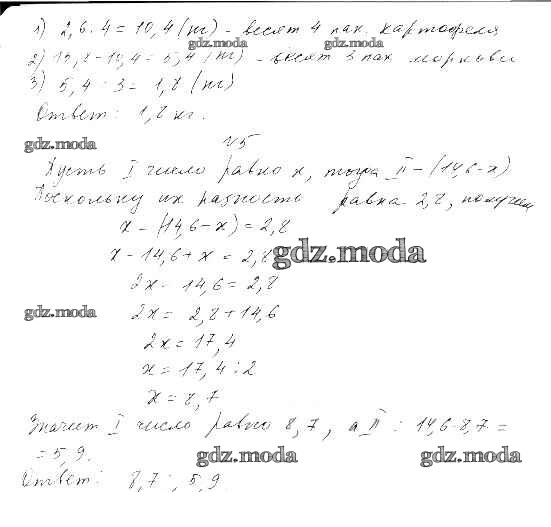 1) 2,6 · 4 = 10,4 (кг) - весят 4 пак. картофеля
gdz.moda gdz.moda
2) 15,8 - 10,4 = 5,4 (кг) - весят 3 пак моркови
3) 5,4 : 3 = 1,8 (кг)
Ответ: 1,8 кг.
gdz.moda
№5
Пусть I число равно x, тогда II - (14,6-x)
Поскольку их разность равна 2,8, получим
x - (14,6 - x) = 2,8
x - 14,6 + x = 2,8
gdz.moda
2x - 14,6 = 2,8
gdz.moda
2x = 2,8 + 14,6
2x = 17,4
x = 17,4 : 2
x = 8,7
Значит I число равно 8,7, а II : 14,6-8,7 =
= 5,9.
gdz.moda gdz.moda
Ответ: 8,7; 5,9.